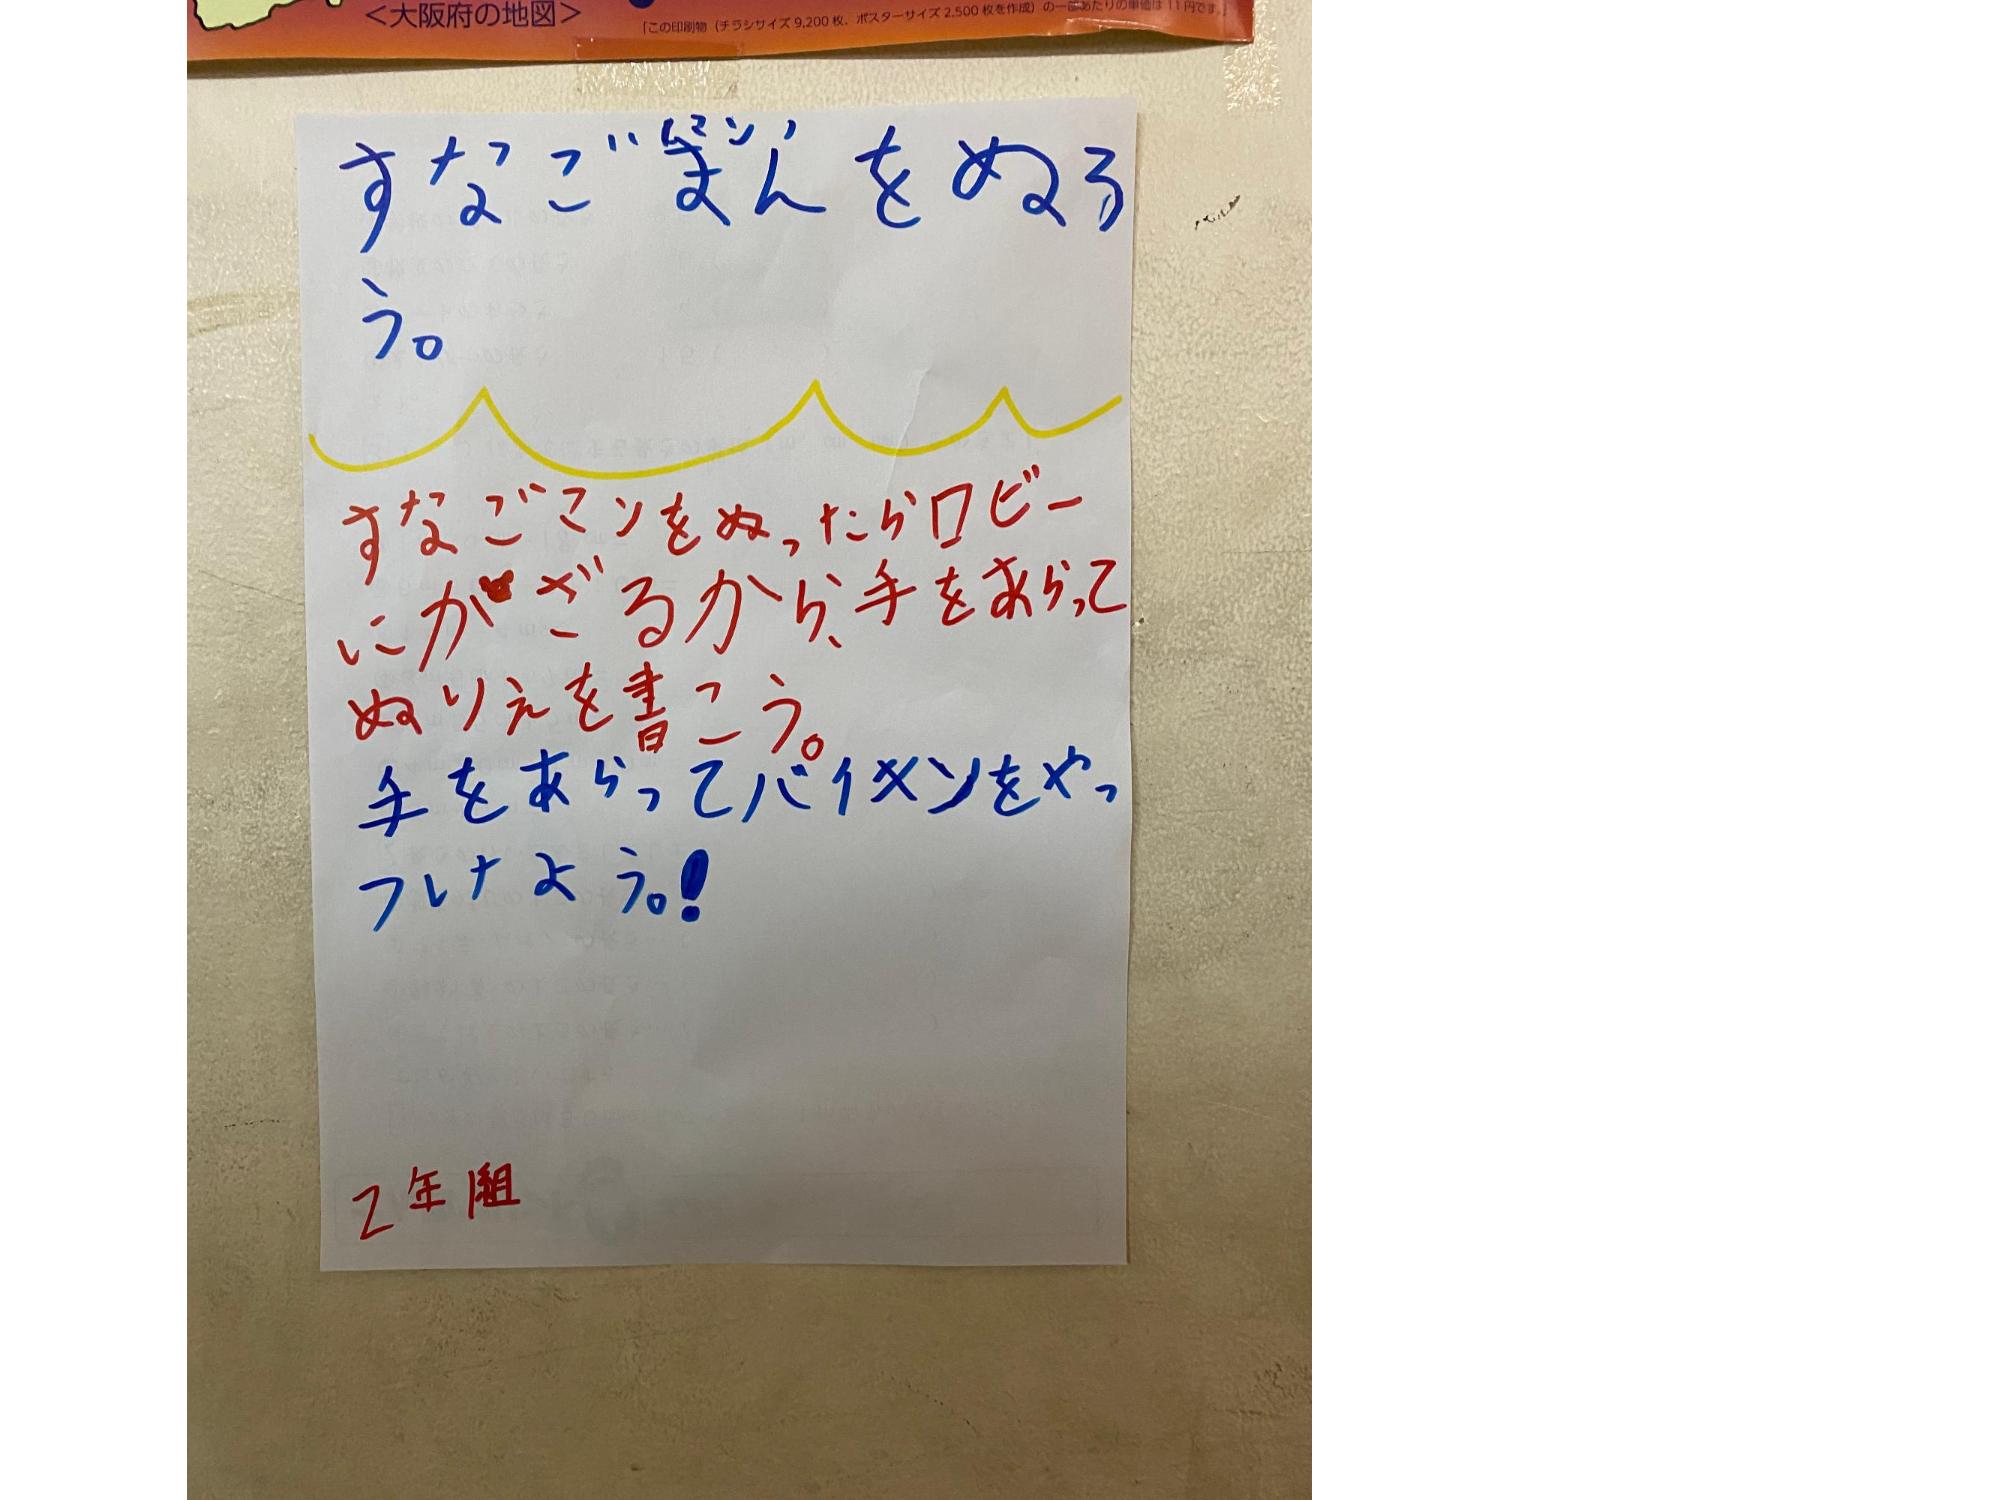 <大阪府の地図>
「この印刷物（チラシサイズ 9,200 枚、ポスターサイズ 2,500 枚を作成）の一部あたりの単価は 11 円です。」
マン
すなごまんをぬろ
う。
すなごマンをぬったらロビー
にかざるから、手をあらって
ぬりえを書こう。
手をあらってバイキンをやっ
つけよう。!
2年組